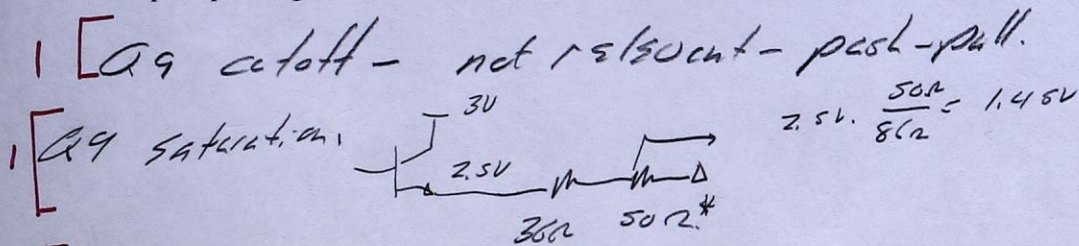 1 [Q9 cutoff - not relevant - push-pull.
1 [Q9 saturation.
3V
2.5V
2.5V. 50Ω/86Ω = 1.45V
36Ω 50Ω*